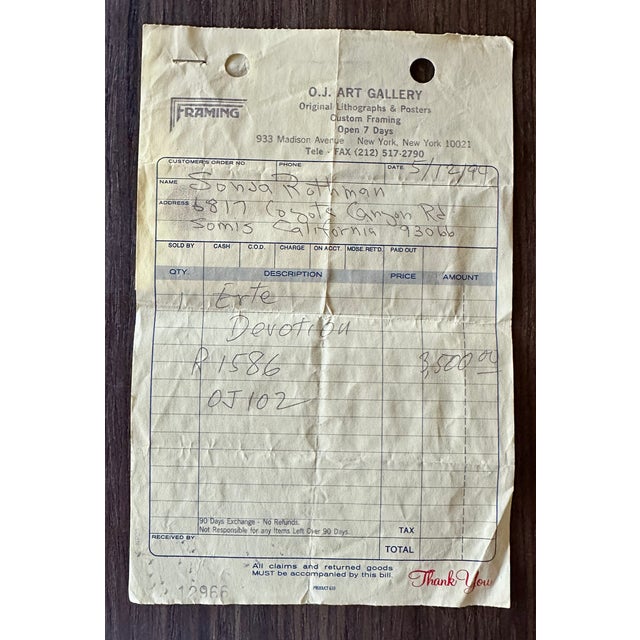 FRAMING
O.J. ART GALLERY
Original Lithographs & Posters
Custom Framing
Open 7 Days
933 Madison Avenue New York, New York 10021
Tele - FAX (212) 517-2790
CUSTOMER'S ORDER NO. PHONE DATE 5/12/94
NAME Sonja Rothman
ADDRESS 6817 Coyote Canyon Rd
Somis California 93066
SOLD BY CASH C.O.D. CHARGE ON ACCT. MDSE. RET'D. PAID OUT
QTY. DESCRIPTION PRICE AMOUNT
1 Erte
Devotion
R1586 3,500.00
OJ102
90 Days Exchange - No Refunds.
Not Responsible for any Items Left Over 90 Days.
TAX
RECEIVED BY
TOTAL
All claims and returned goods
MUST be accompanied by this bill.
Thank You
12966
PRODUCT 610